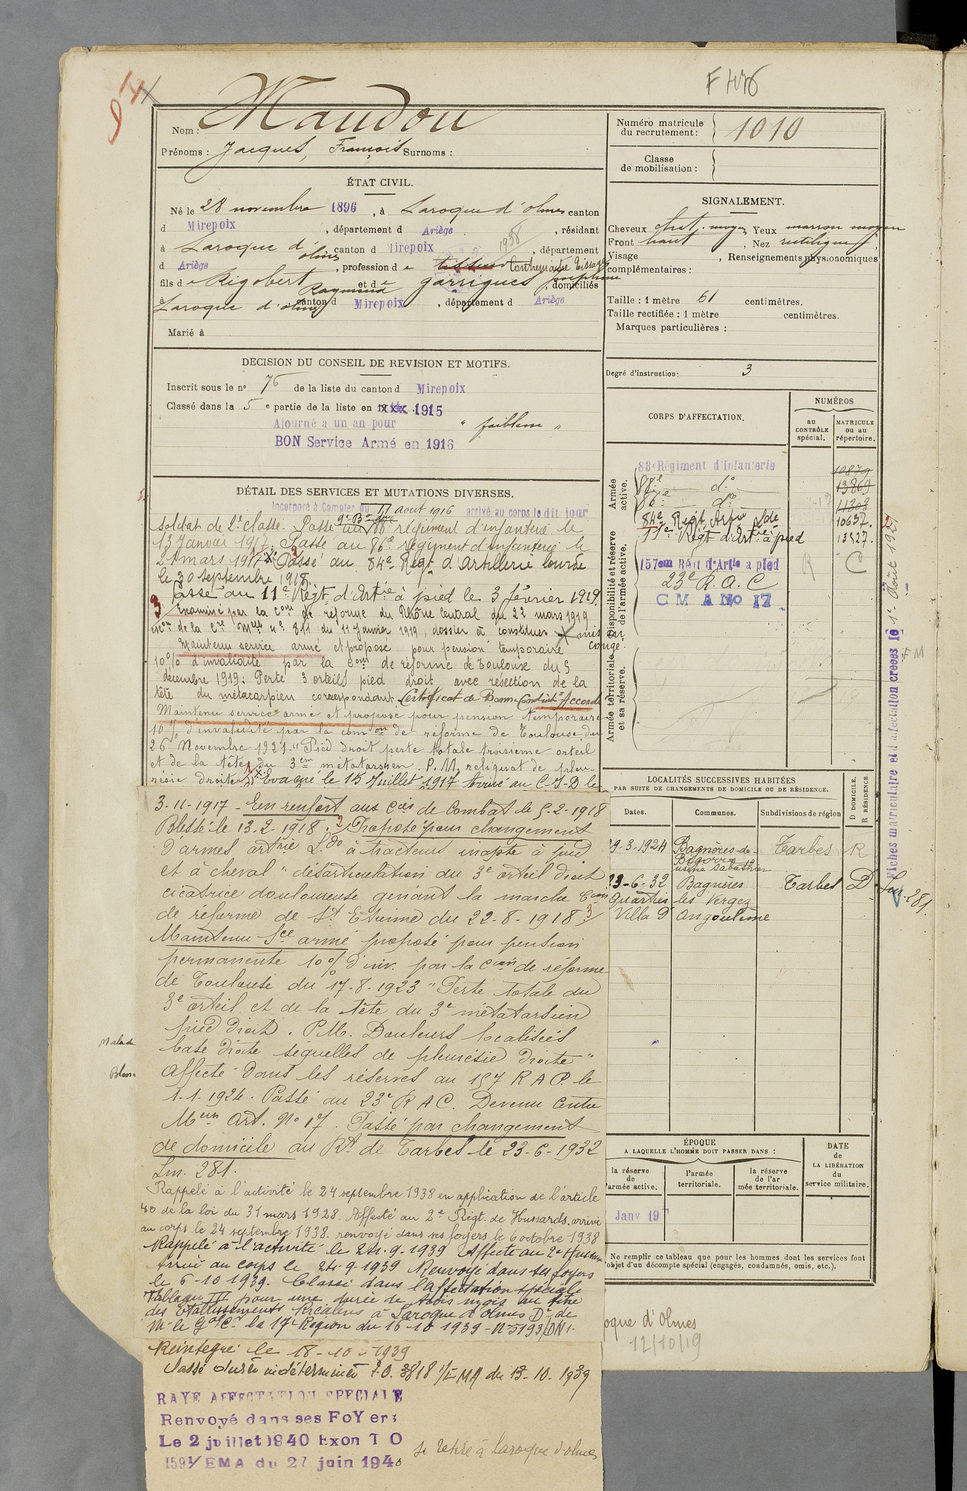 F 1476
Nom : Maudou
Prénoms : Jacques, François Surnoms :
ÉTAT CIVIL.
Né le 28 novembre 1896, à Laroque d'olmes canton
d Mirepoix, département d Ariège, résidant
à Laroque d'olmes, canton d Mirepoix 1938, département
d Ariège, profession de tisseur Contremaitre Tissage
fils de Rigobert Raymond et de Garrigues Joséphine domiciliés
à Laroque d'olmes canton d Mirepoix, département d Ariège
Marié à
DÉCISION DU CONSEIL DE REVISION ET MOTIFS.
Inscrit sous le n° 76 de la liste du canton d Mirepoix
Classé dans la 5e partie de la liste en 1915
Ajourné a un an pour "faiblesse"
BON Service Armé en 1916
DÉTAIL DES SERVICES ET MUTATIONS DIVERSES.
Incorporé à Compter du 11 aout 1916 arrivé au corps le dit jour
soldat de 2e classe. Passé au 86e régiment d'infanterie le
13 Janvier 1917. Passé au 86e régiment d'infanterie le
24 mars 1917. Passé au 84e Régt d'Artillerie lourde
le 30 septembre 1918.
Passé au 11e Régt d'Artie à pied le 3 février 1919.
Examiné par la Com de réforme du Rhône Central du 22 mars 1919
de la Cre Mlle n° 811 du 11 Janvier 1919, dossier à constituer
Maintenu service armé et proposé pour pension temporaire
10% d'invalidité par la Com de réforme de Toulouse du 5
décembre 1919: Perte 3 orteils pied droit avec résection de la
tête du métacarpien correspondant. Certificat de Bonne Conduite Accordé
Maintenu service armé et proposé pour pension temporaire
10% d'invalidité par la Con de réforme de Toulouse du
26 Novembre 1921. "Pied droit perte totale troisième orteil
et de la tête du 3em métatarsien. P.M. reliquat de pleu-
résie droite" Evacué le 15 Juillet 1917 arrivé au C.I.D le
3-11-1917 - En renfort aux Cies de Combat le 5-2-1918
Blessé le 13-2-1918. Proposé pour changement
d'armes artrie Lde à tracteurs inapte à pied
et à cheval "désarticulation du 3e orteil droit
cicatrice douloureuse gênant la marche Con
de réforme de St Etienne du 22-8-1918
Maintenu Sce armé proposé pour pension
permanente 10% d'inv. par la Con de réforme
de Toulouse du 17-8-1923 "Perte totale du
3e orteil et de la tête du 3e métatarsien
pied droit. P.M. Douleurs localisées
base droite séquelles de pleurésie droite"
Affecté dans les réserves au 157 R A P. le
1-1-1924. Passé au 23e R A C. Devenu Centre
Mon Art. No 17. Passé par changement
de domicile au Rt de Tarbes le 23-6-1932
Lm. 281.
Malade
Blessé
Rappelé à l'activité le 24 septembre 1938 en application de l'article
40 de la loi du 31 mars 1928. Affecté au 2e Régt de Hussards, arrivé
au corps le 24 septembre 1938. renvoyé dans ses foyers le 6 octobre 1938
Rappelé à l'activité le 24-9-1939 Affecté au 2e Hussards
Arrivé au corps le 24-9-1939 Renvoyé dans ses foyers
le 6-10-1939. Classé dans l'affectation spéciale
Tableau III pour une durée de trois mois au titre
des Etablissements Ricalens à Laroque d'Olmes Don de
Mr le Gal Ct la 17e Région du 16-10-1939 - N° 5193/DM 1.
Réintégré le 18-10-1939
Passé durée indéterminée F.O. 3818 1/EMA du 13-10-1939
RAYE AFFECTATION SPECIALE
Renvoyé dans ses FoYers
Le 2 juillet 1940 Exon T O
1591/EMA du 27 juin 1940
se retire à Laroque d'olmes
Numéro matricule du recrutement : 1010
Classe de mobilisation :
SIGNALEMENT.
Cheveux chat. moyen Yeux marron moyen
Front haut, Nez rectiligne
Visage, Renseignements physionomiques
complémentaires :
Taille : 1 mètre 61 centimètres.
Taille rectifiée : 1 mètre centimètres.
Marques particulières :
Degré d'instruction : 3
CORPS D'AFFECTATION.
NUMÉROS
AU CONTRÔLE spécial.
MATRICULE OU AU répertoire.
Armée active.
Disponibilité et réserve de l'armée active.
Armée territoriale et sa réserve.
88e Régiment d'Infanterie 10879
88e do 13869
86e do 11808
84e Régt Artie Lde 10637.
11e Régt d'Artie à pied 13527.
157em Régt d'Artie à pied R C
23e R.A.C
C M A No 17
LOCALITÉS SUCCESSIVES HABITÉES
PAR SUITE DE CHANGEMENTS DE DOMICILE OU DE RÉSIDENCE.
Dates. Communes. Subdivisions de région D DOMICILE. R RÉSIDENCE
29-3-1924 Bagnères-de-Bigorre usine Sabathier Tarbes R
23-6-32 Bagnères Tarbes D Lm-281.
Quartier les Vergez
Villa D'Angoulème
ÉPOQUE
A LAQUELLE L'HOMME DOIT PASSER DANS :
la réserve de l'armée active.
l'armée territoriale.
la réserve de l'armée territoriale.
DATE DE LA LIBÉRATION du service militaire.
Janv 19
Ne remplir ce tableau que pour les hommes dont les services font
l'objet d'un décompte spécial (engagés, condamnés, omis, etc.).
oque d'Olmes
12/10/19
Fiches matriculaire et d'affectation créées le 1er Août 193